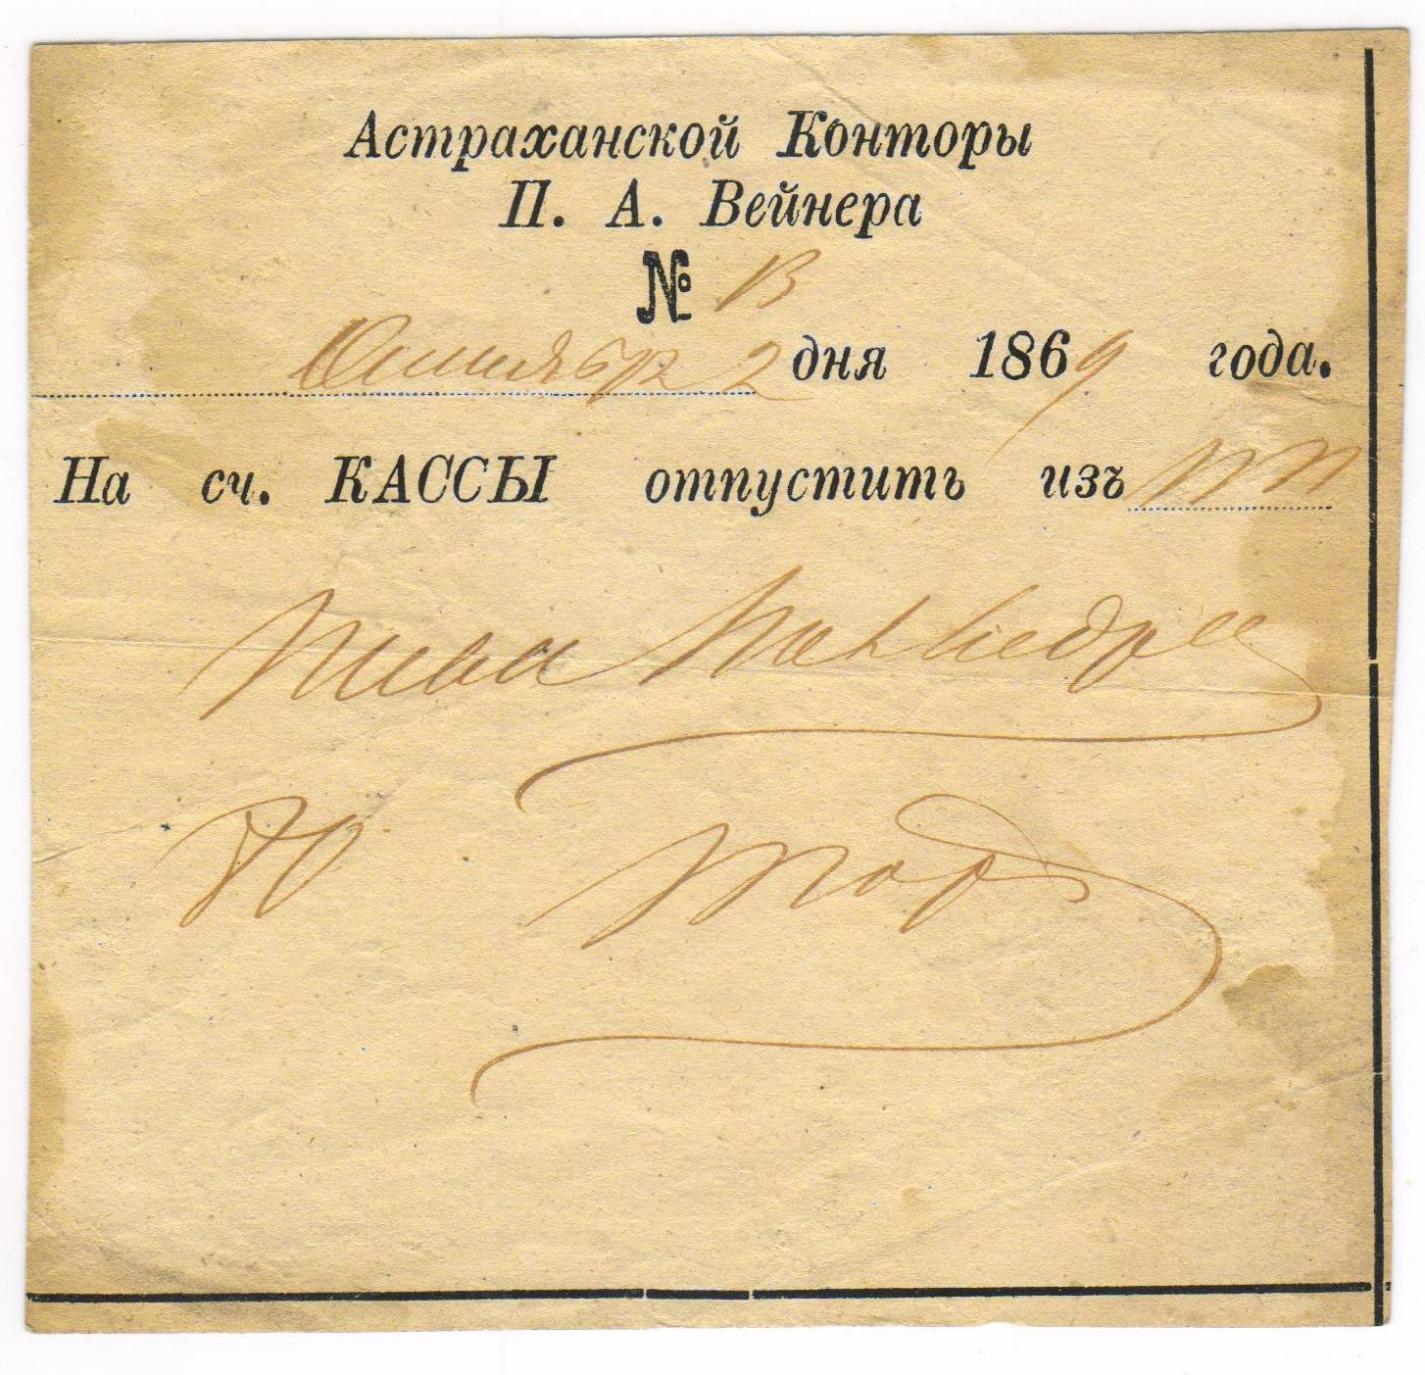 Астраханской Конторы
П. А. Вейнера
№ В
Октября 2 дня 1869 года.
На сч. КАССЫ отпустить изъ
Пива Полведра